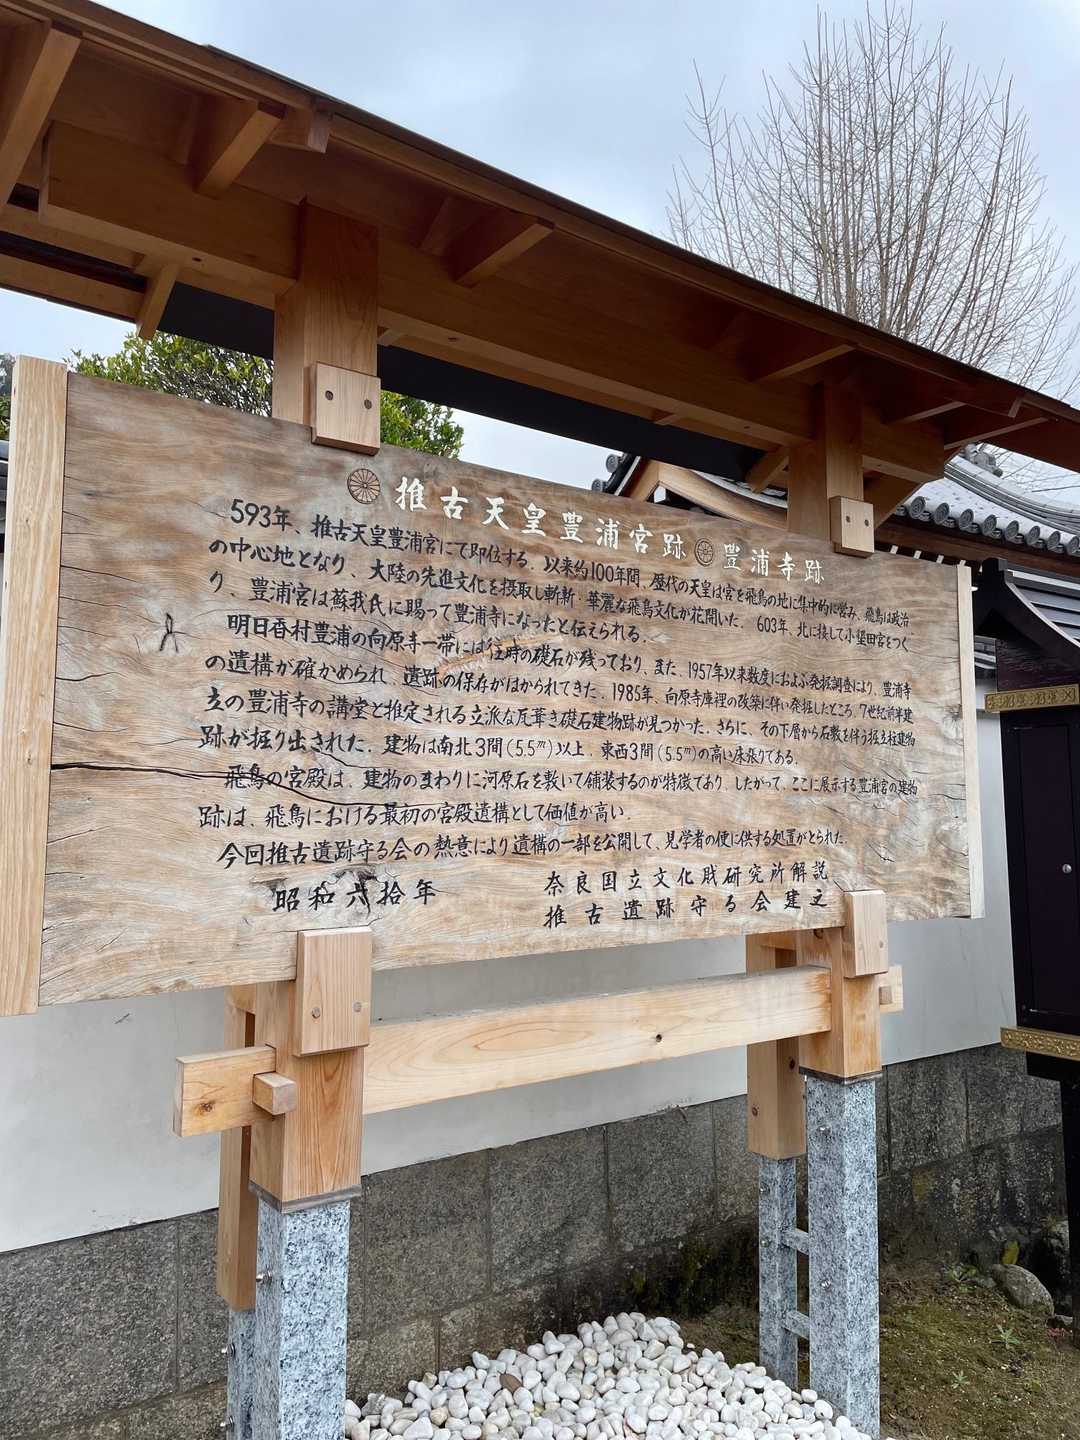 推古天皇豊浦宮跡 豊浦寺跡
593年、推古天皇豊浦宮にて即位する。以来約100年間、歴代の天皇は宮を飛鳥の地に集中的に営み、飛鳥は政治
の中心地となり、大陸の先進文化を摂取し斬新・華麗な飛鳥文化が花開いた。603年、北に接して小墾田宮をつく
り、豊浦宮は蘇我氏に賜って豊浦寺になったと伝えられる。
明日香村豊浦の向原寺一帯には往時の礎石が残っており、また、1957年以来数度におよぶ発掘調査により、豊浦寺
の遺構が確かめられ、遺跡の保存がはかられてきた。1985年、向原寺庫裡の改築に伴い発掘したところ、7世紀前半建
立の豊浦寺の講堂と推定される立派な瓦葺き礎石建物跡が見つかった。さらに、その下層から石敷を伴う掘立柱建物
跡が掘り出された。建物は南北3間(5.5m)以上、東西3間(5.5m)の高い床張りである。
飛鳥の宮殿は、建物のまわりに河原石を敷いて舗装するのが特徴であり、したがって、ここに展示する豊浦宮の建物
跡は、飛鳥における最初の宮殿遺構として価値が高い。
今回推古遺跡守る会の熱意により遺構の一部を公開して、見学者の便に供する処置がとられた。
昭和六拾年
奈良国立文化財研究所解説
推古遺跡守る会建之